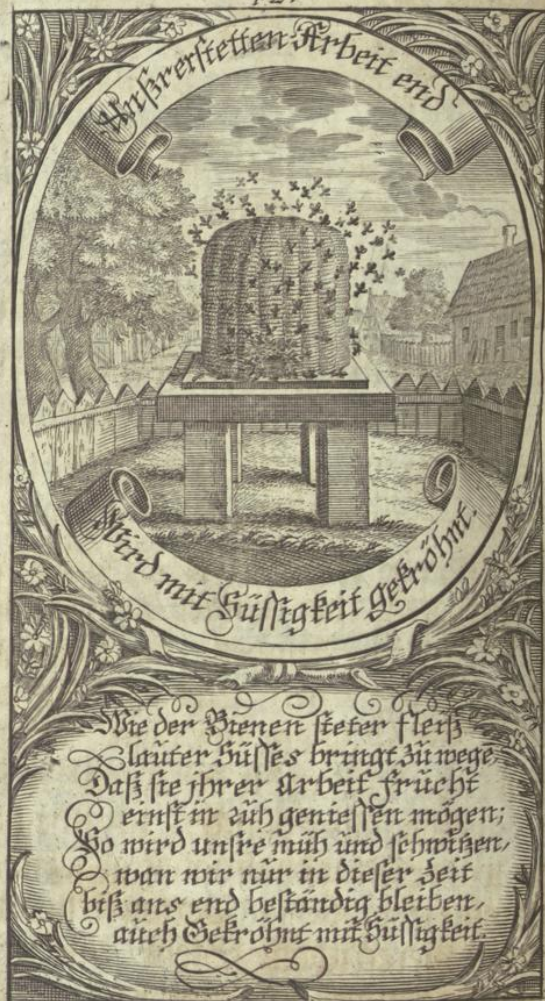 Unsrer stetten Arbeit end
Wird mit Süssigkeit gekröhnt.
Wie der Bienen steter fleiß
lauter Süsses bringt zu wege,
Daß sie jhrer Arbeit frücht
ernst in rüh geniessen mögen;
So wird unsre müh und schwitzen,
wan wir nur in dieser Zeit
biß ans end beständig bleiben,
auch Gekröhnt mit Süssigkeit.